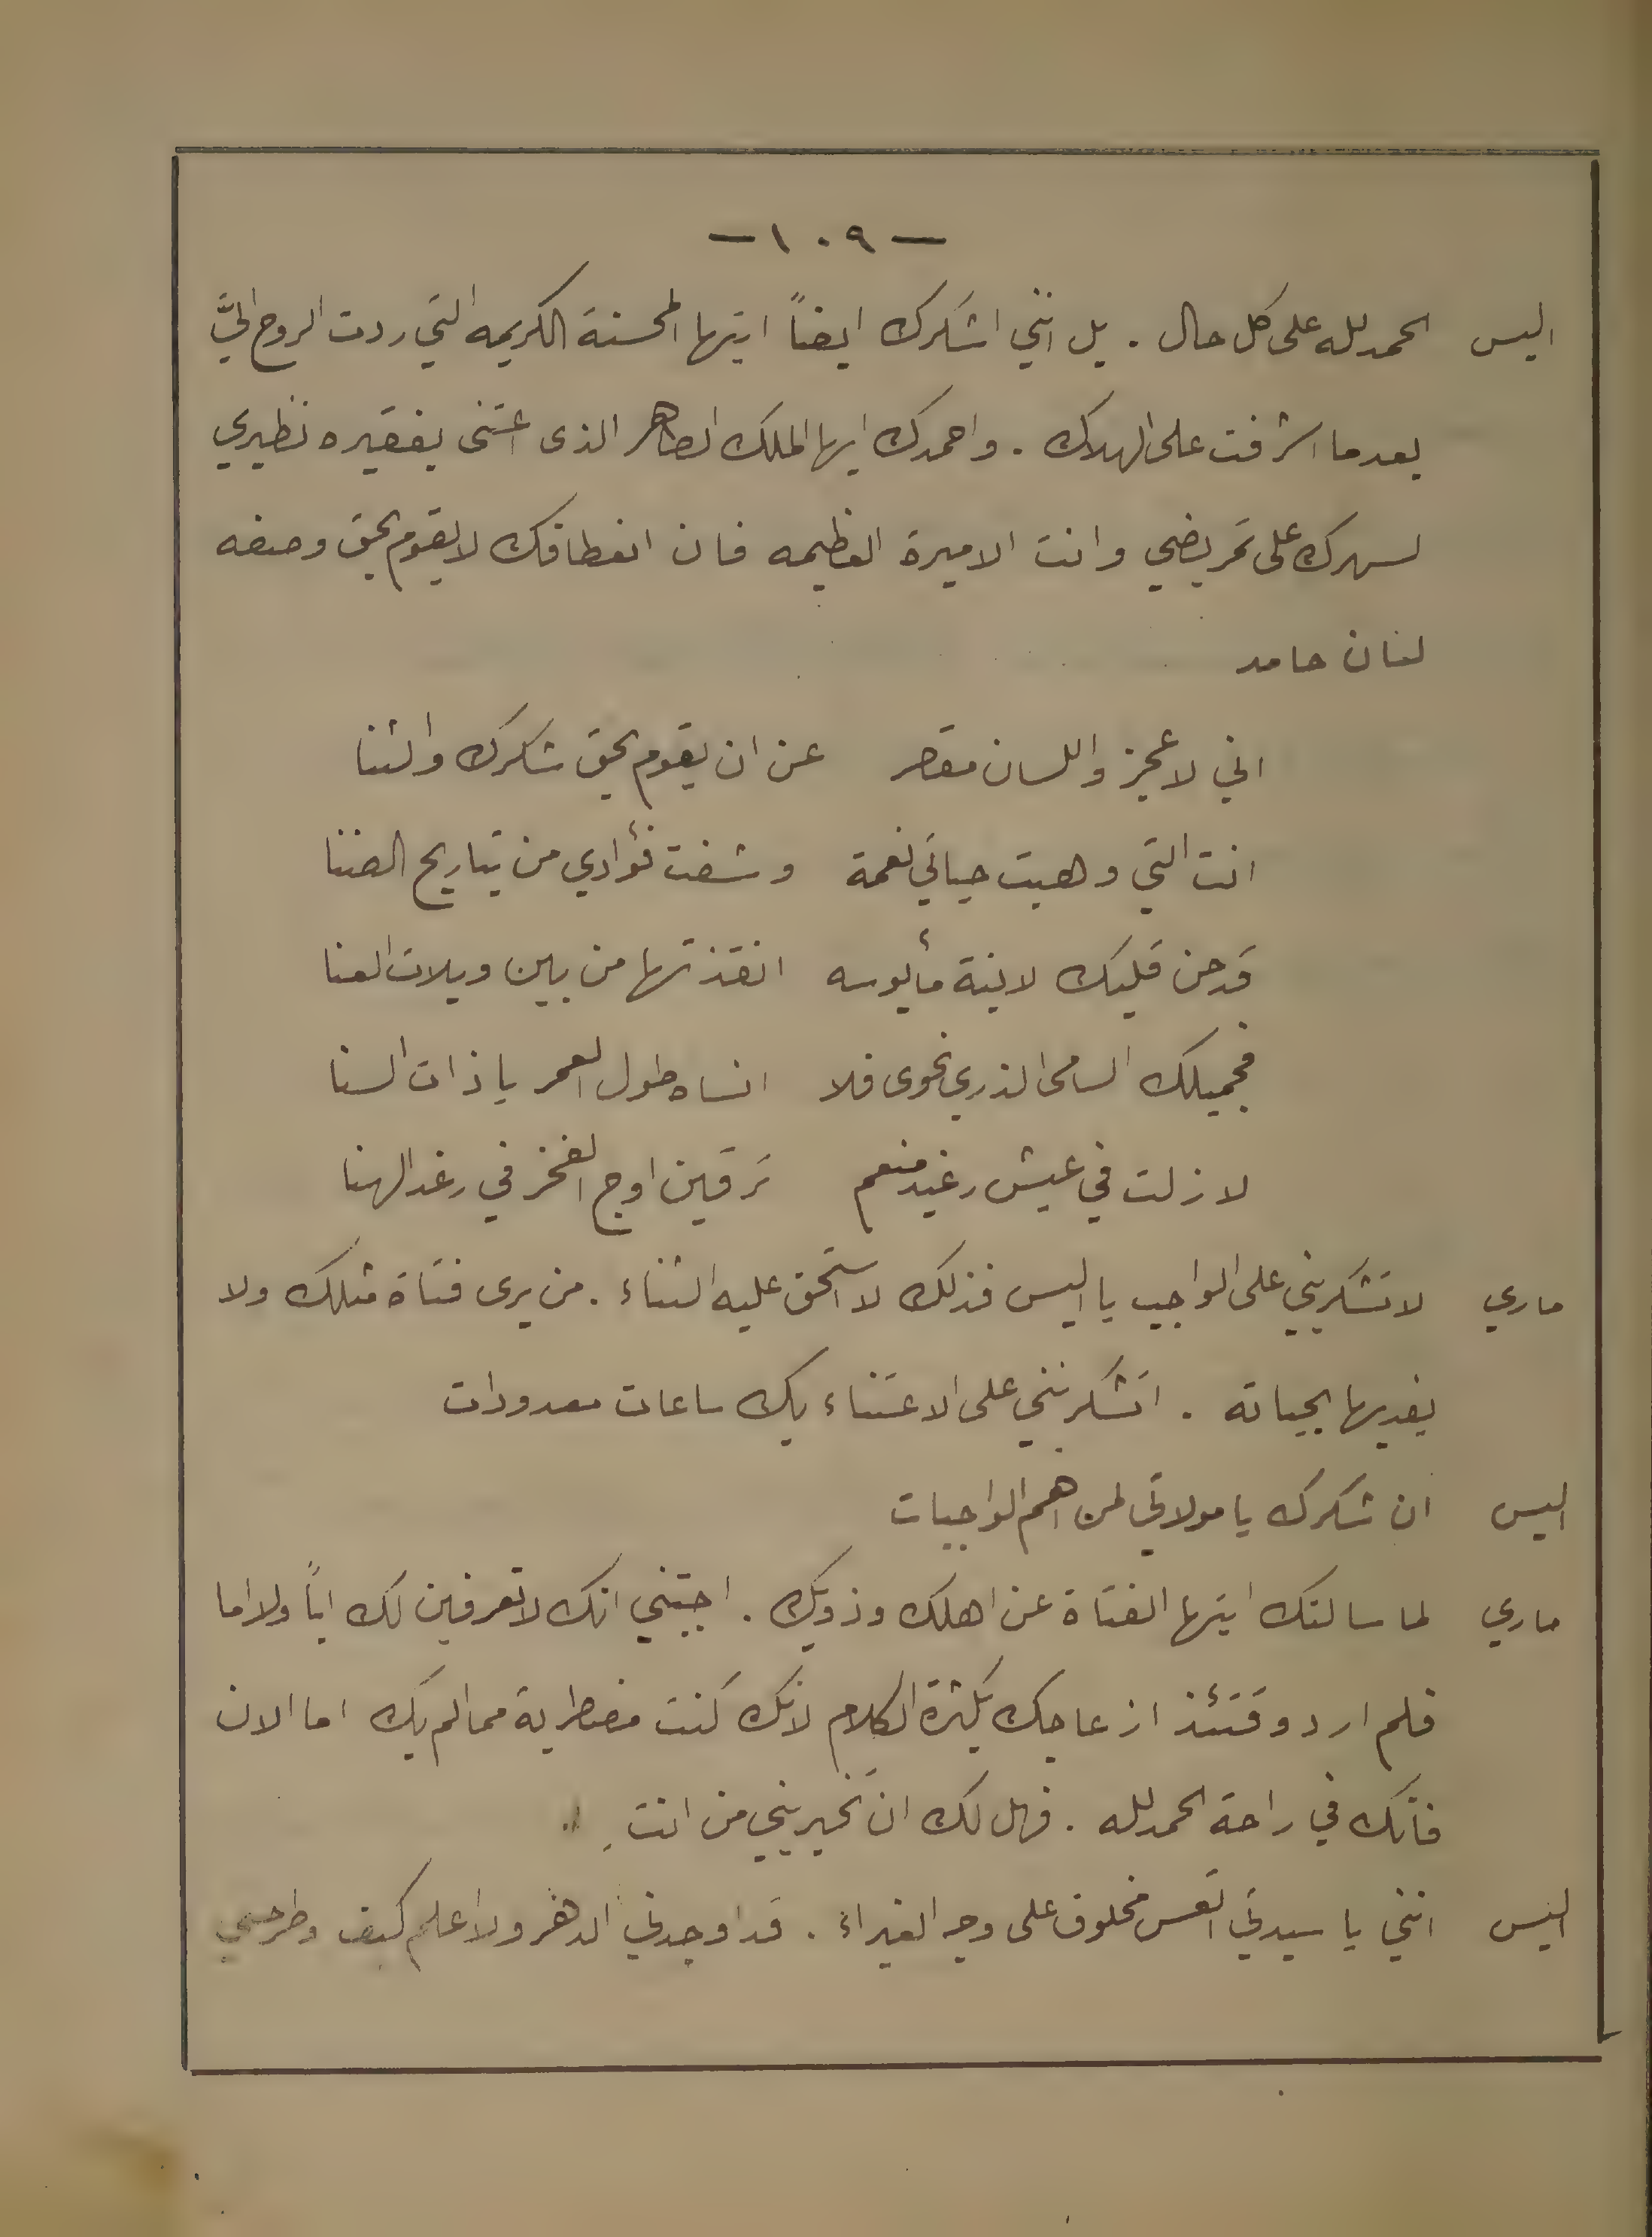 — ١٠٩ —
اليس الحمد لله على كل حال . بل انني اشكرك ايضاً ايتها المحسنة الكريمه التي ردت الروح اليَّ
بعدما اشرفت على الهلاك . واحمدك ايها الملاك الطاهر الذى اعتنى بفقيره نظيري
لسهرك على تمريضي وانت الاميرة العظيمه فان انعطافك لا يقوم بحق وصفه
لسان حامد
اني لاعجز واللسان مقصر عن ان يقوم بحق شكرك والثنا
انت التي وهبت حياتي نعمة وشفت فؤادي من تباريح الضنا
قد حن قلبك لابنة مأيوسه انقذتها من بين ويلات العنا
فجميلك السامى الذري نحوى فلا انساه طول العمر يا ذات السنا
لا زلت في عيش رغيد منعم ترقين اوج الفخر في رغد الهنا
ماري لا تشكريني على الواجب يا اليس فذلك لا استحق عليه الثناء . من يرى فتاة مثلك ولا
يفديها بحياته . اتشكرينني على الاعتناء بك ساعات معدودات
اليس ان شكرك يا مولاتي لمن اهم الواجبات
ماري لما سالتك ايتها الفتاة عن اهلك وذويك . اجبتني انك لا تعرفين لك اباً ولا اما
فلم ارد وقتئذ ازعاجك بكثرة الكلام لانك كنت مضطربة مما الم بك اما الان
فانك في راحة الحمد لله . فهل لك ان تخبريني من انت
اليس انني يا سيدتي اتعس مخلوق على وجه الغبراء . قد اوجدني الدهر ولا اعلم كيف وطرحني